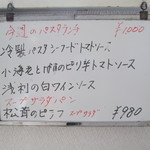 今週のパスタランチ ¥1000
冷製パスタシーフードトマトソース
小海老と のピリ辛トマトソース
浅利の白ワインソース
スープサラダパン
松茸のピラフ スープサラダ ¥980